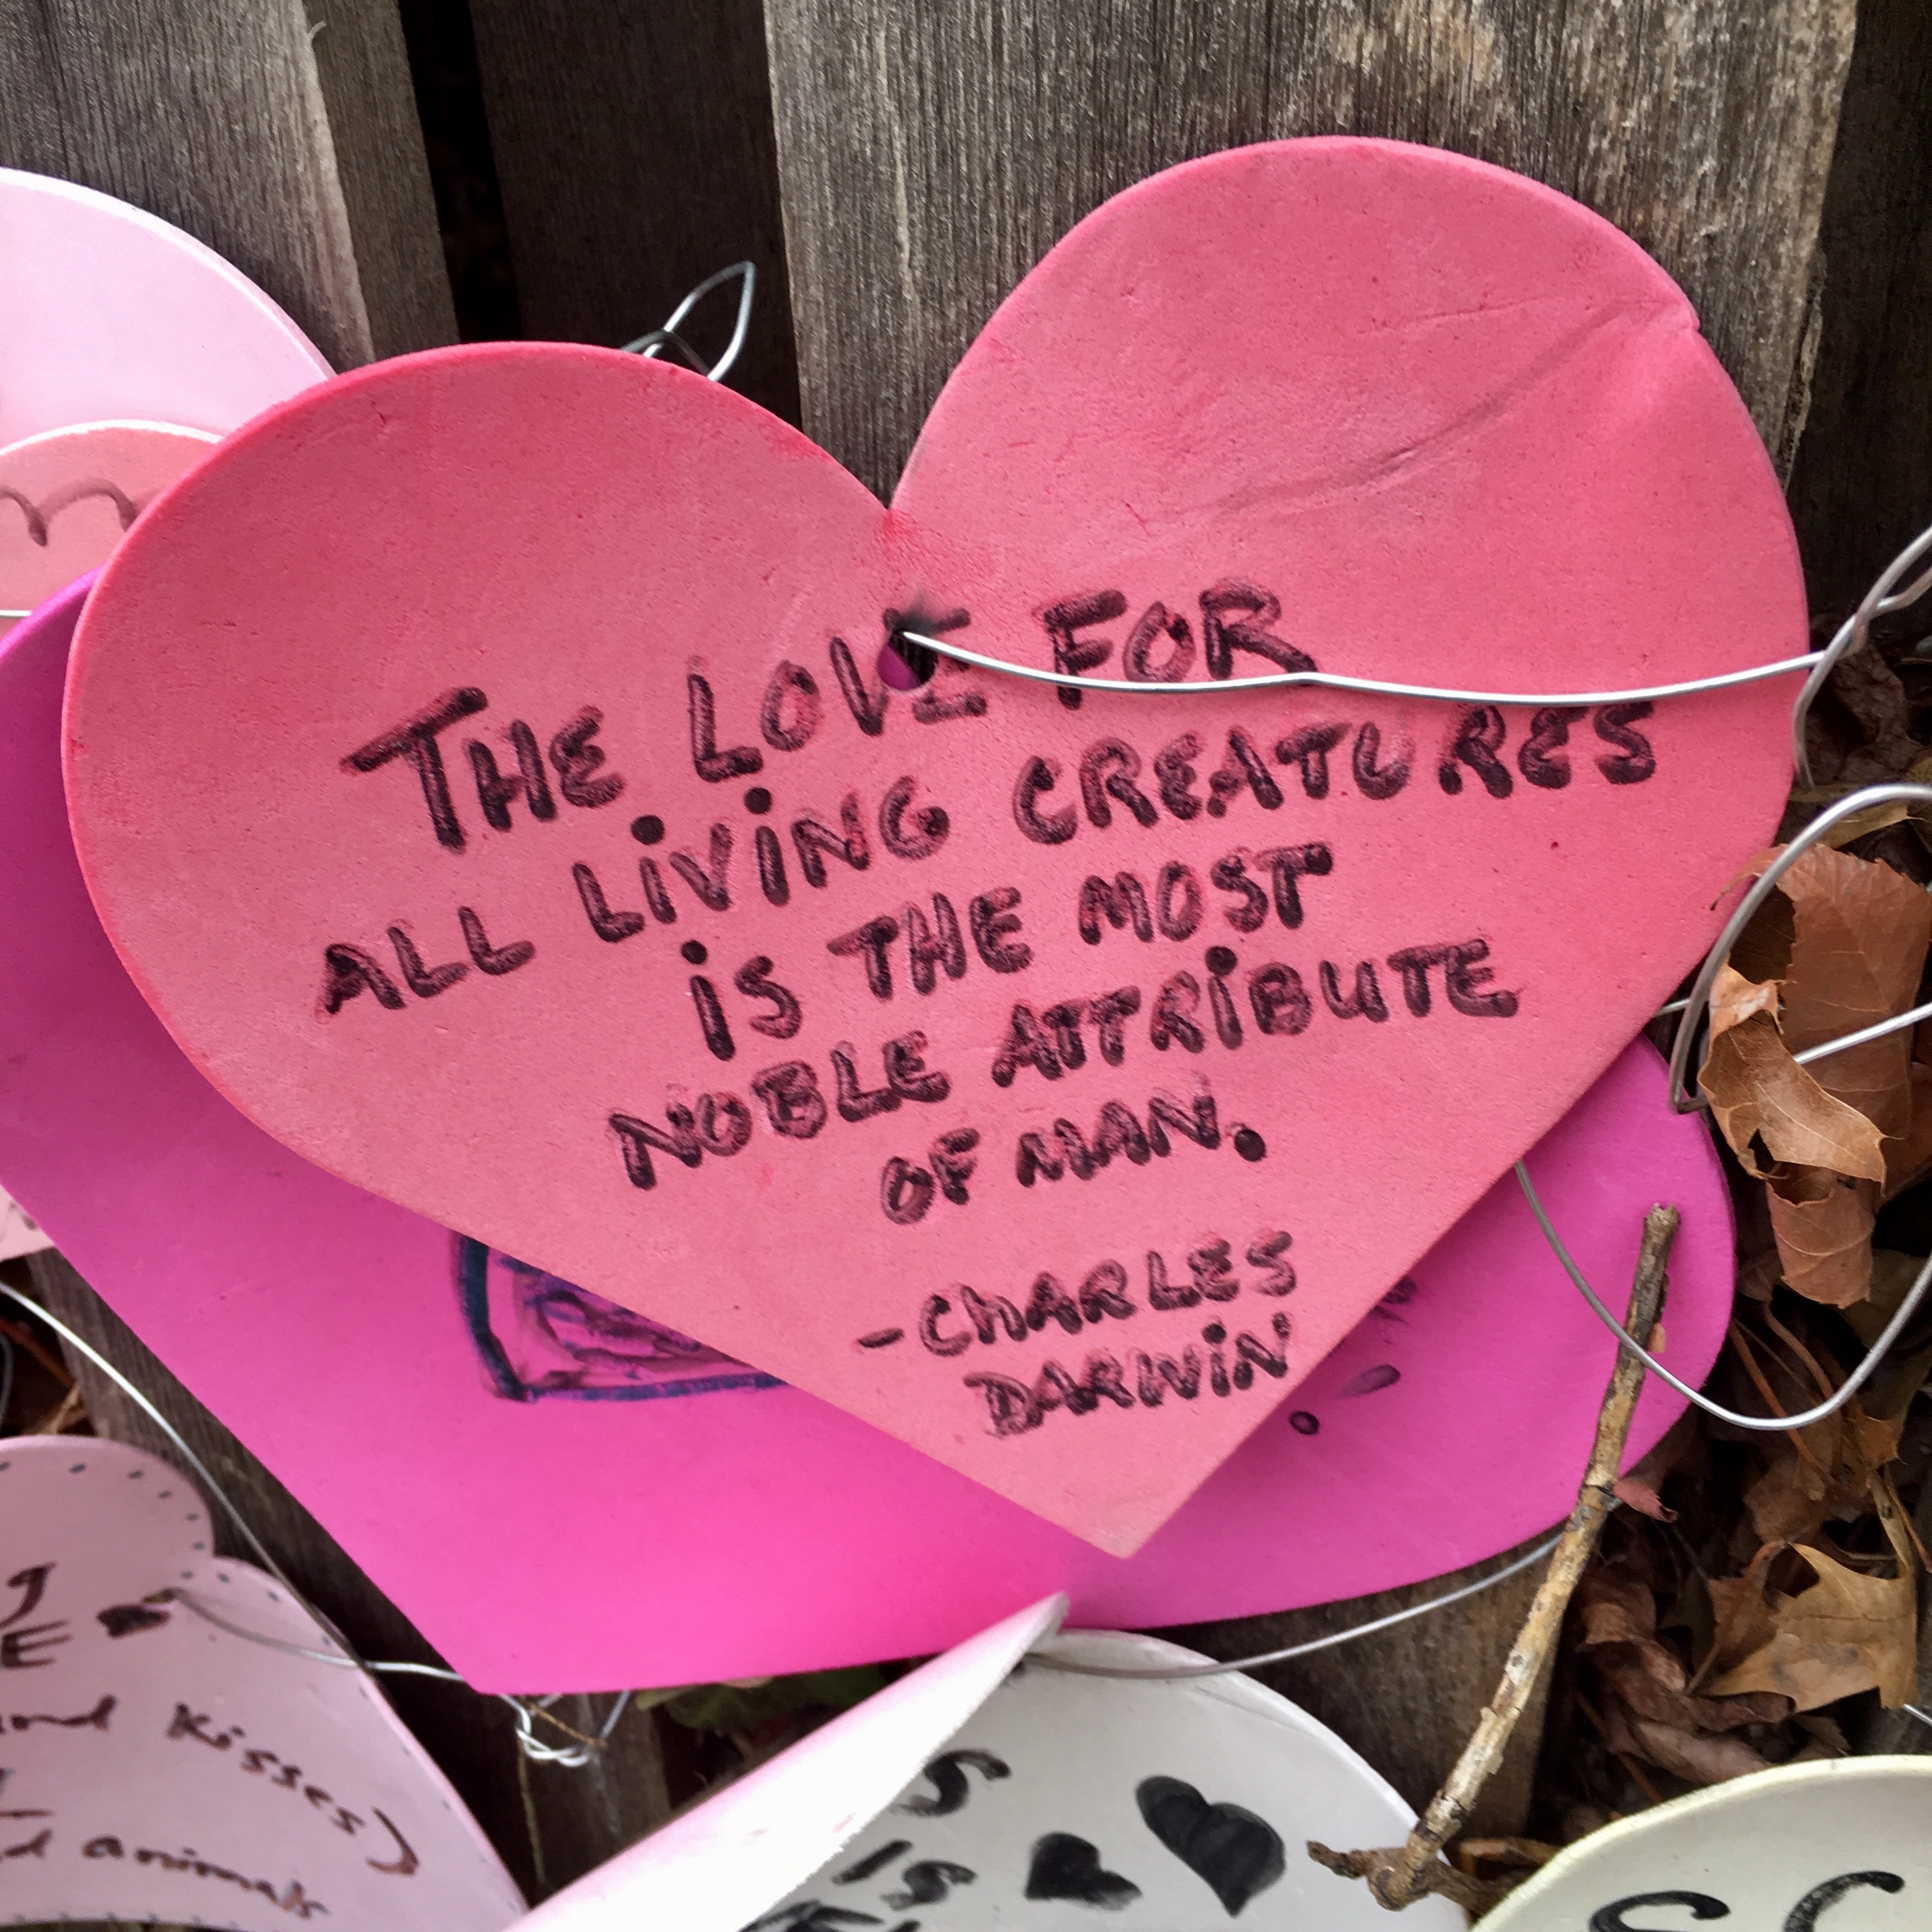 THE LOVE FOR
ALL LiViNG CREATURES
iS THE MOST
NOBLE ATTRiBUTE
OF MAN.
-CHARLES
DARWiN
Kisses)
animals
S
is